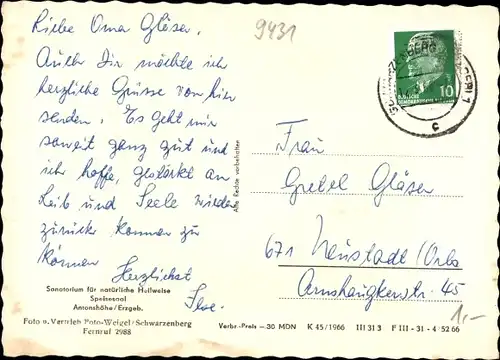 9431
Liebe Oma Gläser,
Auch Dir möchte ich
herzliche Grüsse von hier
senden. Es geht mir
soweit ganz gut und
ich hoffe, gestärkt an
Leib und Seele wieder
zurück kommen zu
können. Herzlichst
10
c
Alle Rechte vorbehalten
Frau
Gretel Gläser
671 Neustadt/Orla
Arnshaugkerstr. 45
1,-
Sanatorium für natürliche Heilweise
Speisesaal
Antonshöhe/Erzgeb.
Foto u. Vertrieb Foto-Weigel/Schwarzenberg
Fernruf 2988
Verbr.-Preis —.30 MDN K 45/1966 III 31 3 F III - 31 - 4 52 66